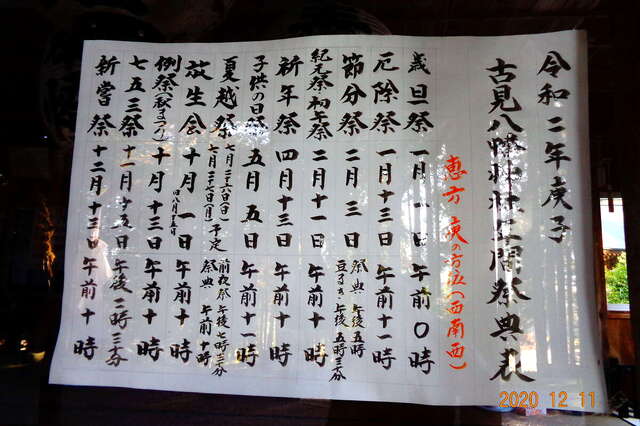 令和二年庚子
古見八幡神社年間祭典表
恵方 庚の方位(西南西)
歳旦祭 一月一日 午前〇時
厄除祭 一月十三日 午前十一時
節分祭 二月三日 祭典 午後五時
豆まき 午後五時三十分
紀元祭 初午祭 二月十一日 午前十時
祈年祭 四月十三日 午前十時
子供の日祭 五月五日 午前十一時
夏越祭 七月二六日(日) 前夜祭 午後七時三十分
七月二七日(月) 予定 祭典 午前十時
放生会 十月一日 午前十時
例祭(秋まつり) 十月十三日 午前十時
七五三祭 十一月十五日 午後二時三十分
新嘗祭 十二月十三日 午前十時
2020 12 11